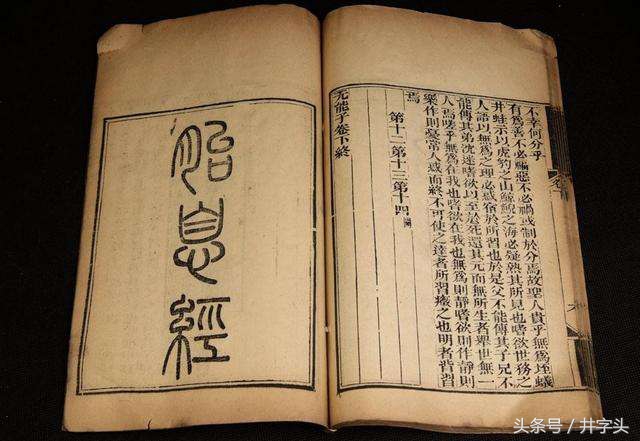 不幸何分乎
有爲善不必福惡不必禍或制於分焉故聖人貴乎無爲垤蟻
井蛙示以虎豹之山鯨鯢之海必疑熟其所見也嗜欲世務之
人語以無爲之理必惑宿於所習也於是父不能傳其子兄不
能傳其弟沈迷嗜欲以至於死還其元而無所生者舉世無一
人焉嗟乎無爲在我也嗜欲在我也無爲則靜嗜欲則作靜則
樂作則憂常人惑而終不可使之達者所習癥之也明者背習
焉
第十二第十三第十四闕
无能子卷下終
胎息經
头条号 / 井字头